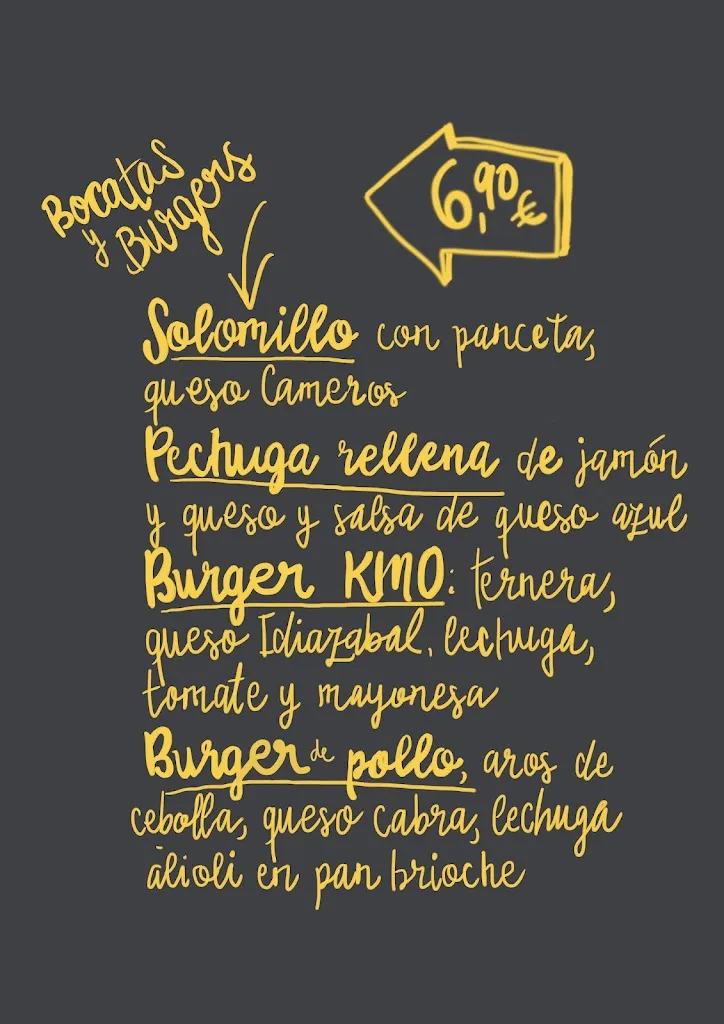 Bocatas
y Burgers
6,90 €
Solomillo con panceta,
queso Cameros
Pechuga rellena de jamón
y queso y salsa de queso azul
Burger KM0: ternera,
queso Idiazabal, lechuga,
tomate y mayonesa
Burger de pollo, aros de
cebolla, queso cabra, lechuga
alioli en pan brioche